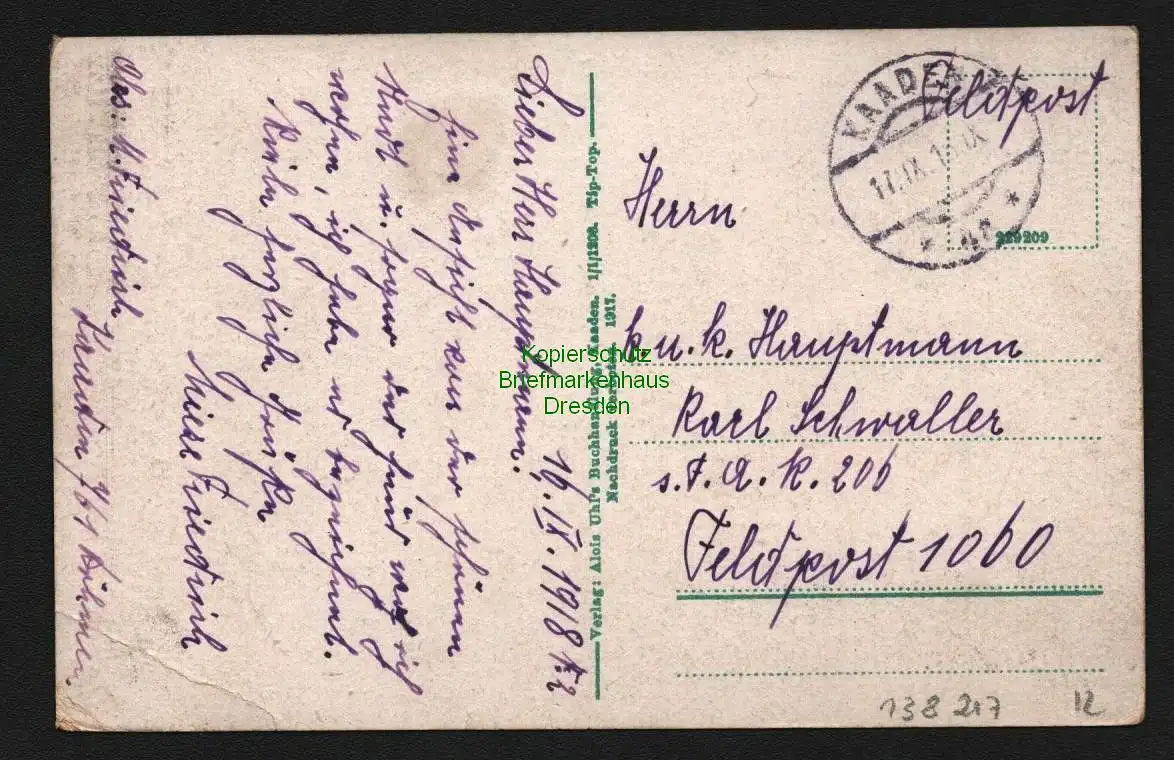 Feldpost
KAADEN
17.IX.18
229209
Herrn
k.u.k. Hauptmann
Karl Schwaller
s.F.A.R. 206
Feldpost 1060
16.IX.1918
Lieber Herr Hauptmann.
Eine Ansicht von der schönen
Stadt u. sogar das Haus wo ich
wohne, ich habe es bezeichnet.
Viele herzliche Grüße
Friedrich
Abs: M. Friedrich
Kaaden 761 Böhmen.
Verlag: Alois Uhl's Buchhandlung, Kaaden. 1/1/1208. Tip-Top.
Nachdruck verboten. 1917.
Kopierschutz
Briefmarkenhaus
Dresden
138 217
12